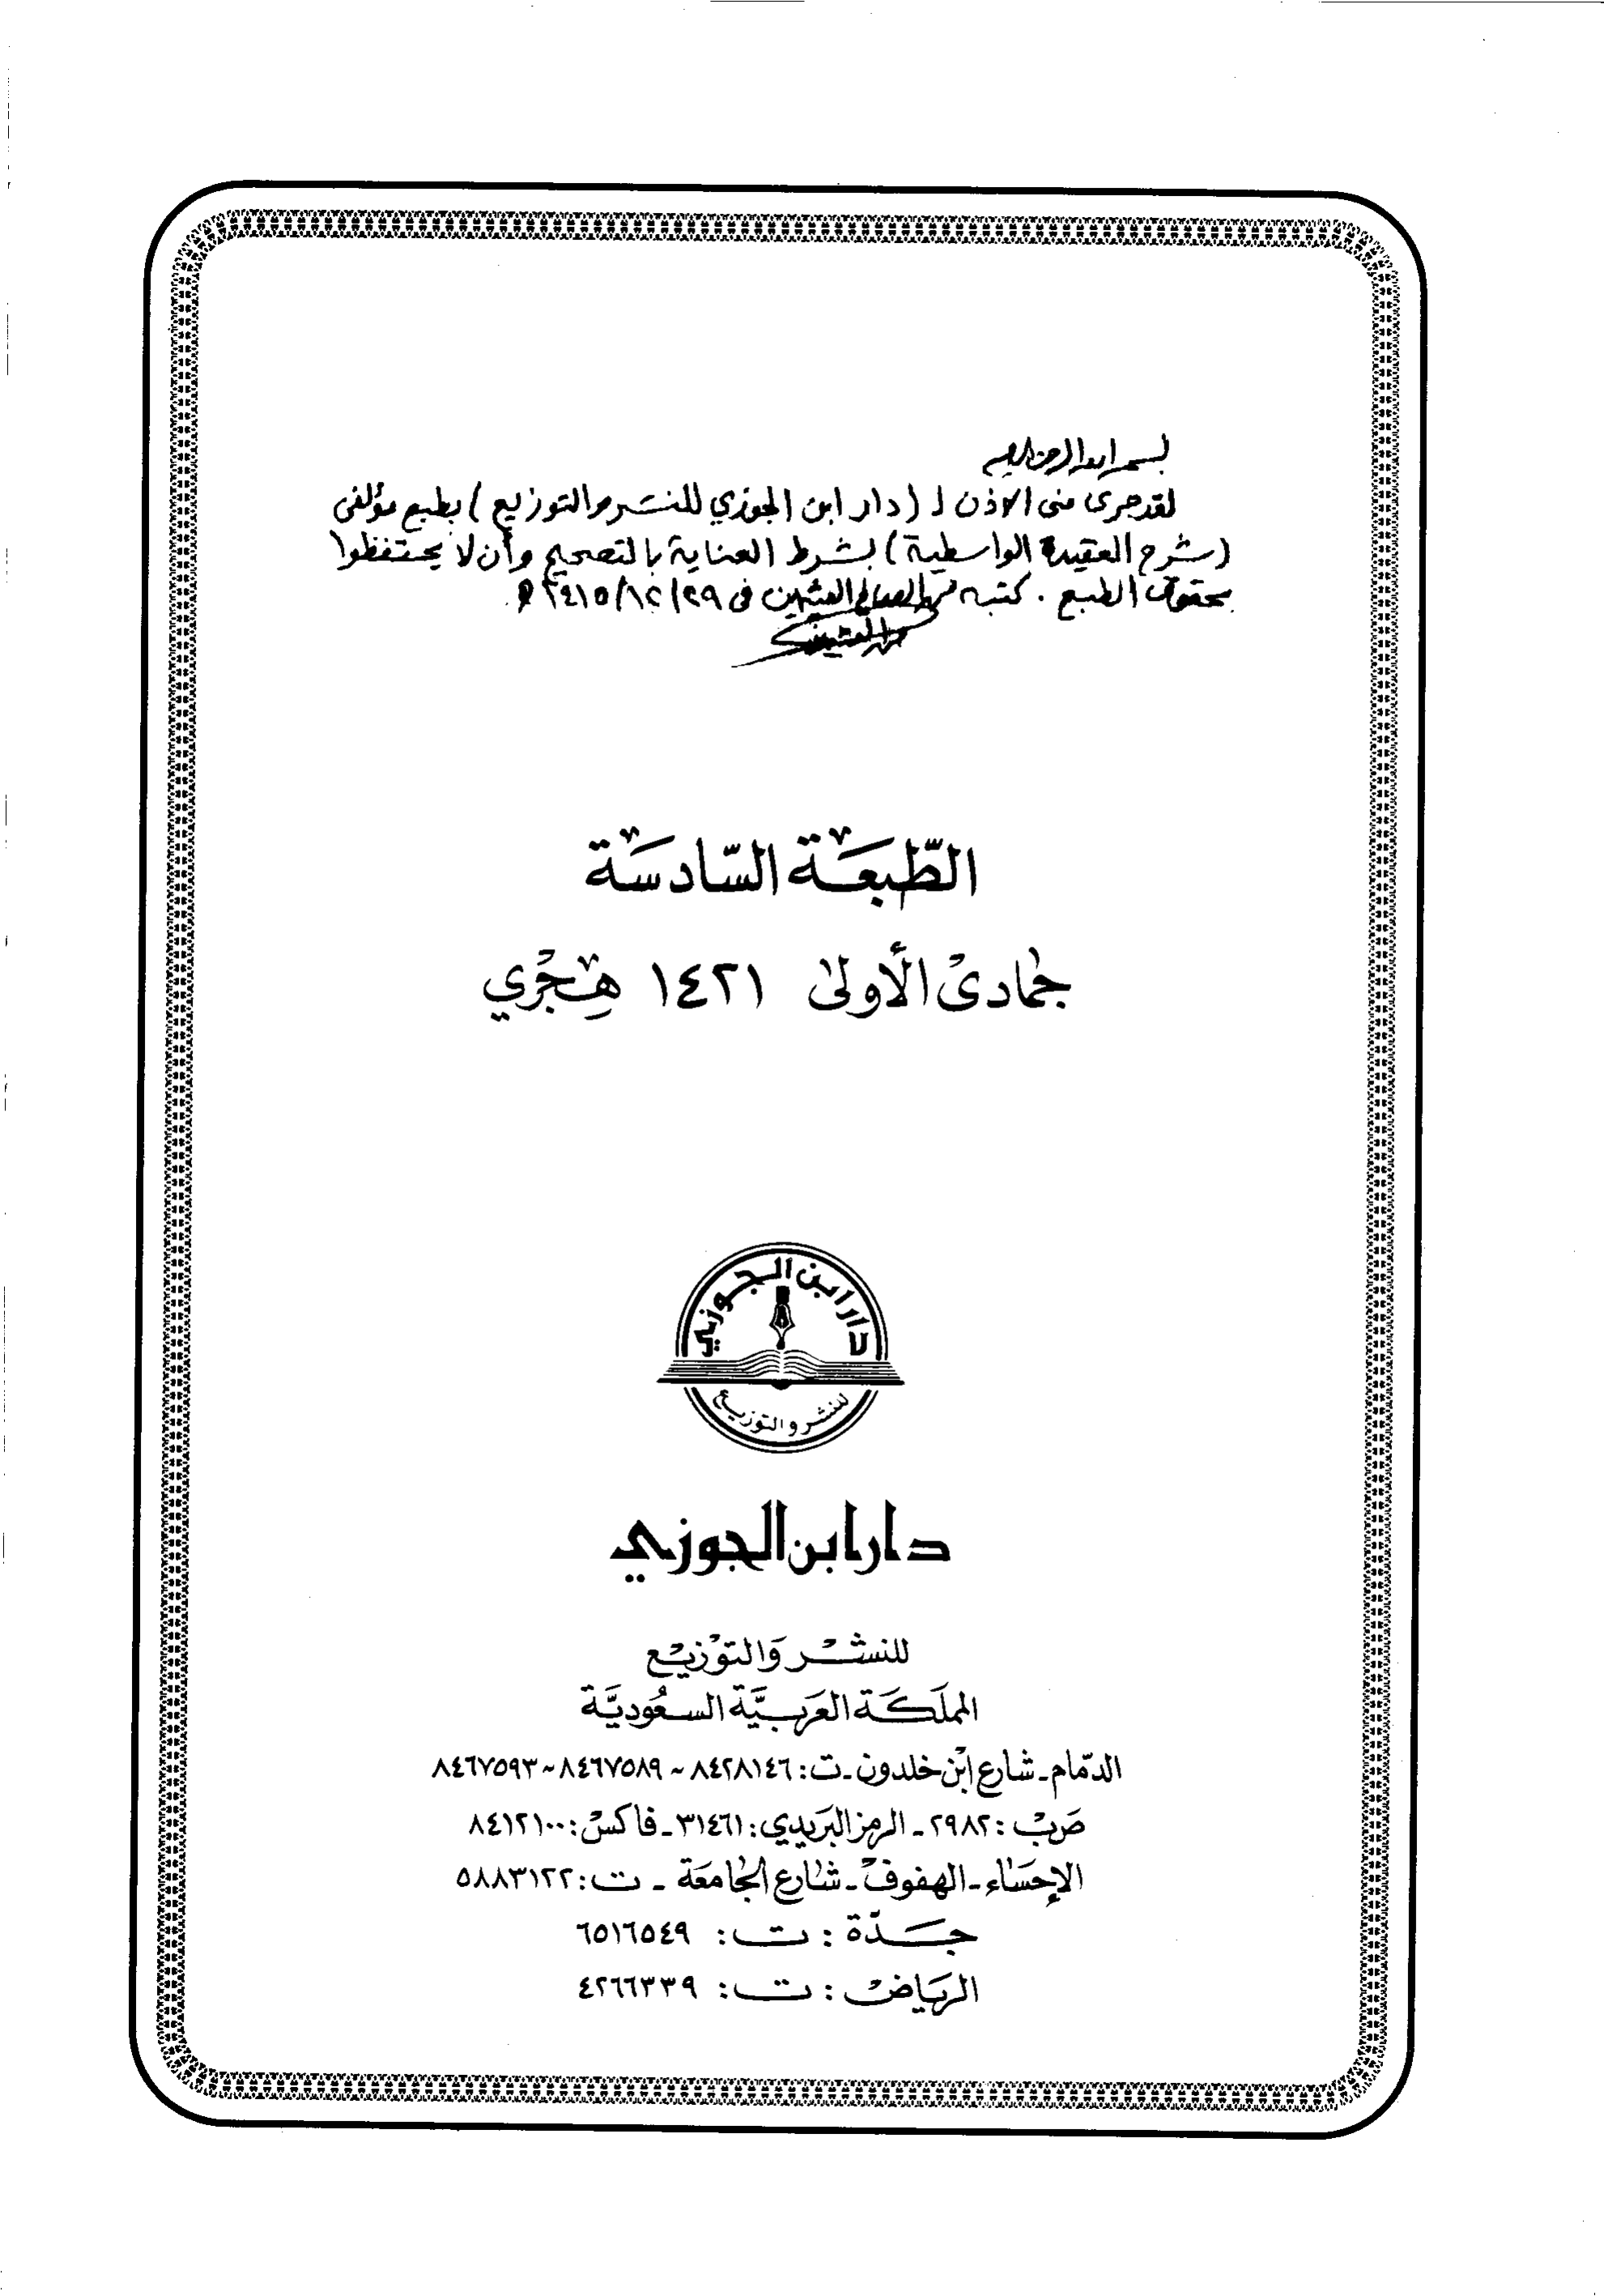 بسم الله الرحمن الرحيم
لقد جرى منى الاذن لـ (دار ابن الجوزي للنشر والتوزيع) بطبع مؤلفى
(شرح العقيدة الواسطية) بشرط العناية بالتصحيح وأن لا يحتفظوا
بحقوق الطبع . كتبه محمد الصالح العثيمين فى ٢٩/١٢/١٤١٥ هـ
الطَّبعَة السَّادسَة
جمادى الأولى ١٤٢١ هِجْري
دار ابن الجوزي
للنشر والتوزيع
دار ابن الجوزي
للنشْر وَالتوْزيْع
المملَكَة العَرَبيَّة السعُوديَّة
الدمّام - شارع ابْن خلدون - ت : ٨٤٢٨١٤٦ ~ ٨٤٦٧٥٨٩ ~ ٨٤٦٧٥٩٣
صَ‌بْ : ٢٩٨٢ - الرمز البَريدي : ٣١٤٦١ - فاكسْ : ٨٤١٢١٠٠
الإحسَاء - الهفوفْ - شارع الجامعَة - ت : ٥٨٨٣١٢٢
جَدّة : ت : ٦٥١٦٥٤٩
الريَاضْ : ت : ٤٢٦٦٣٣٩